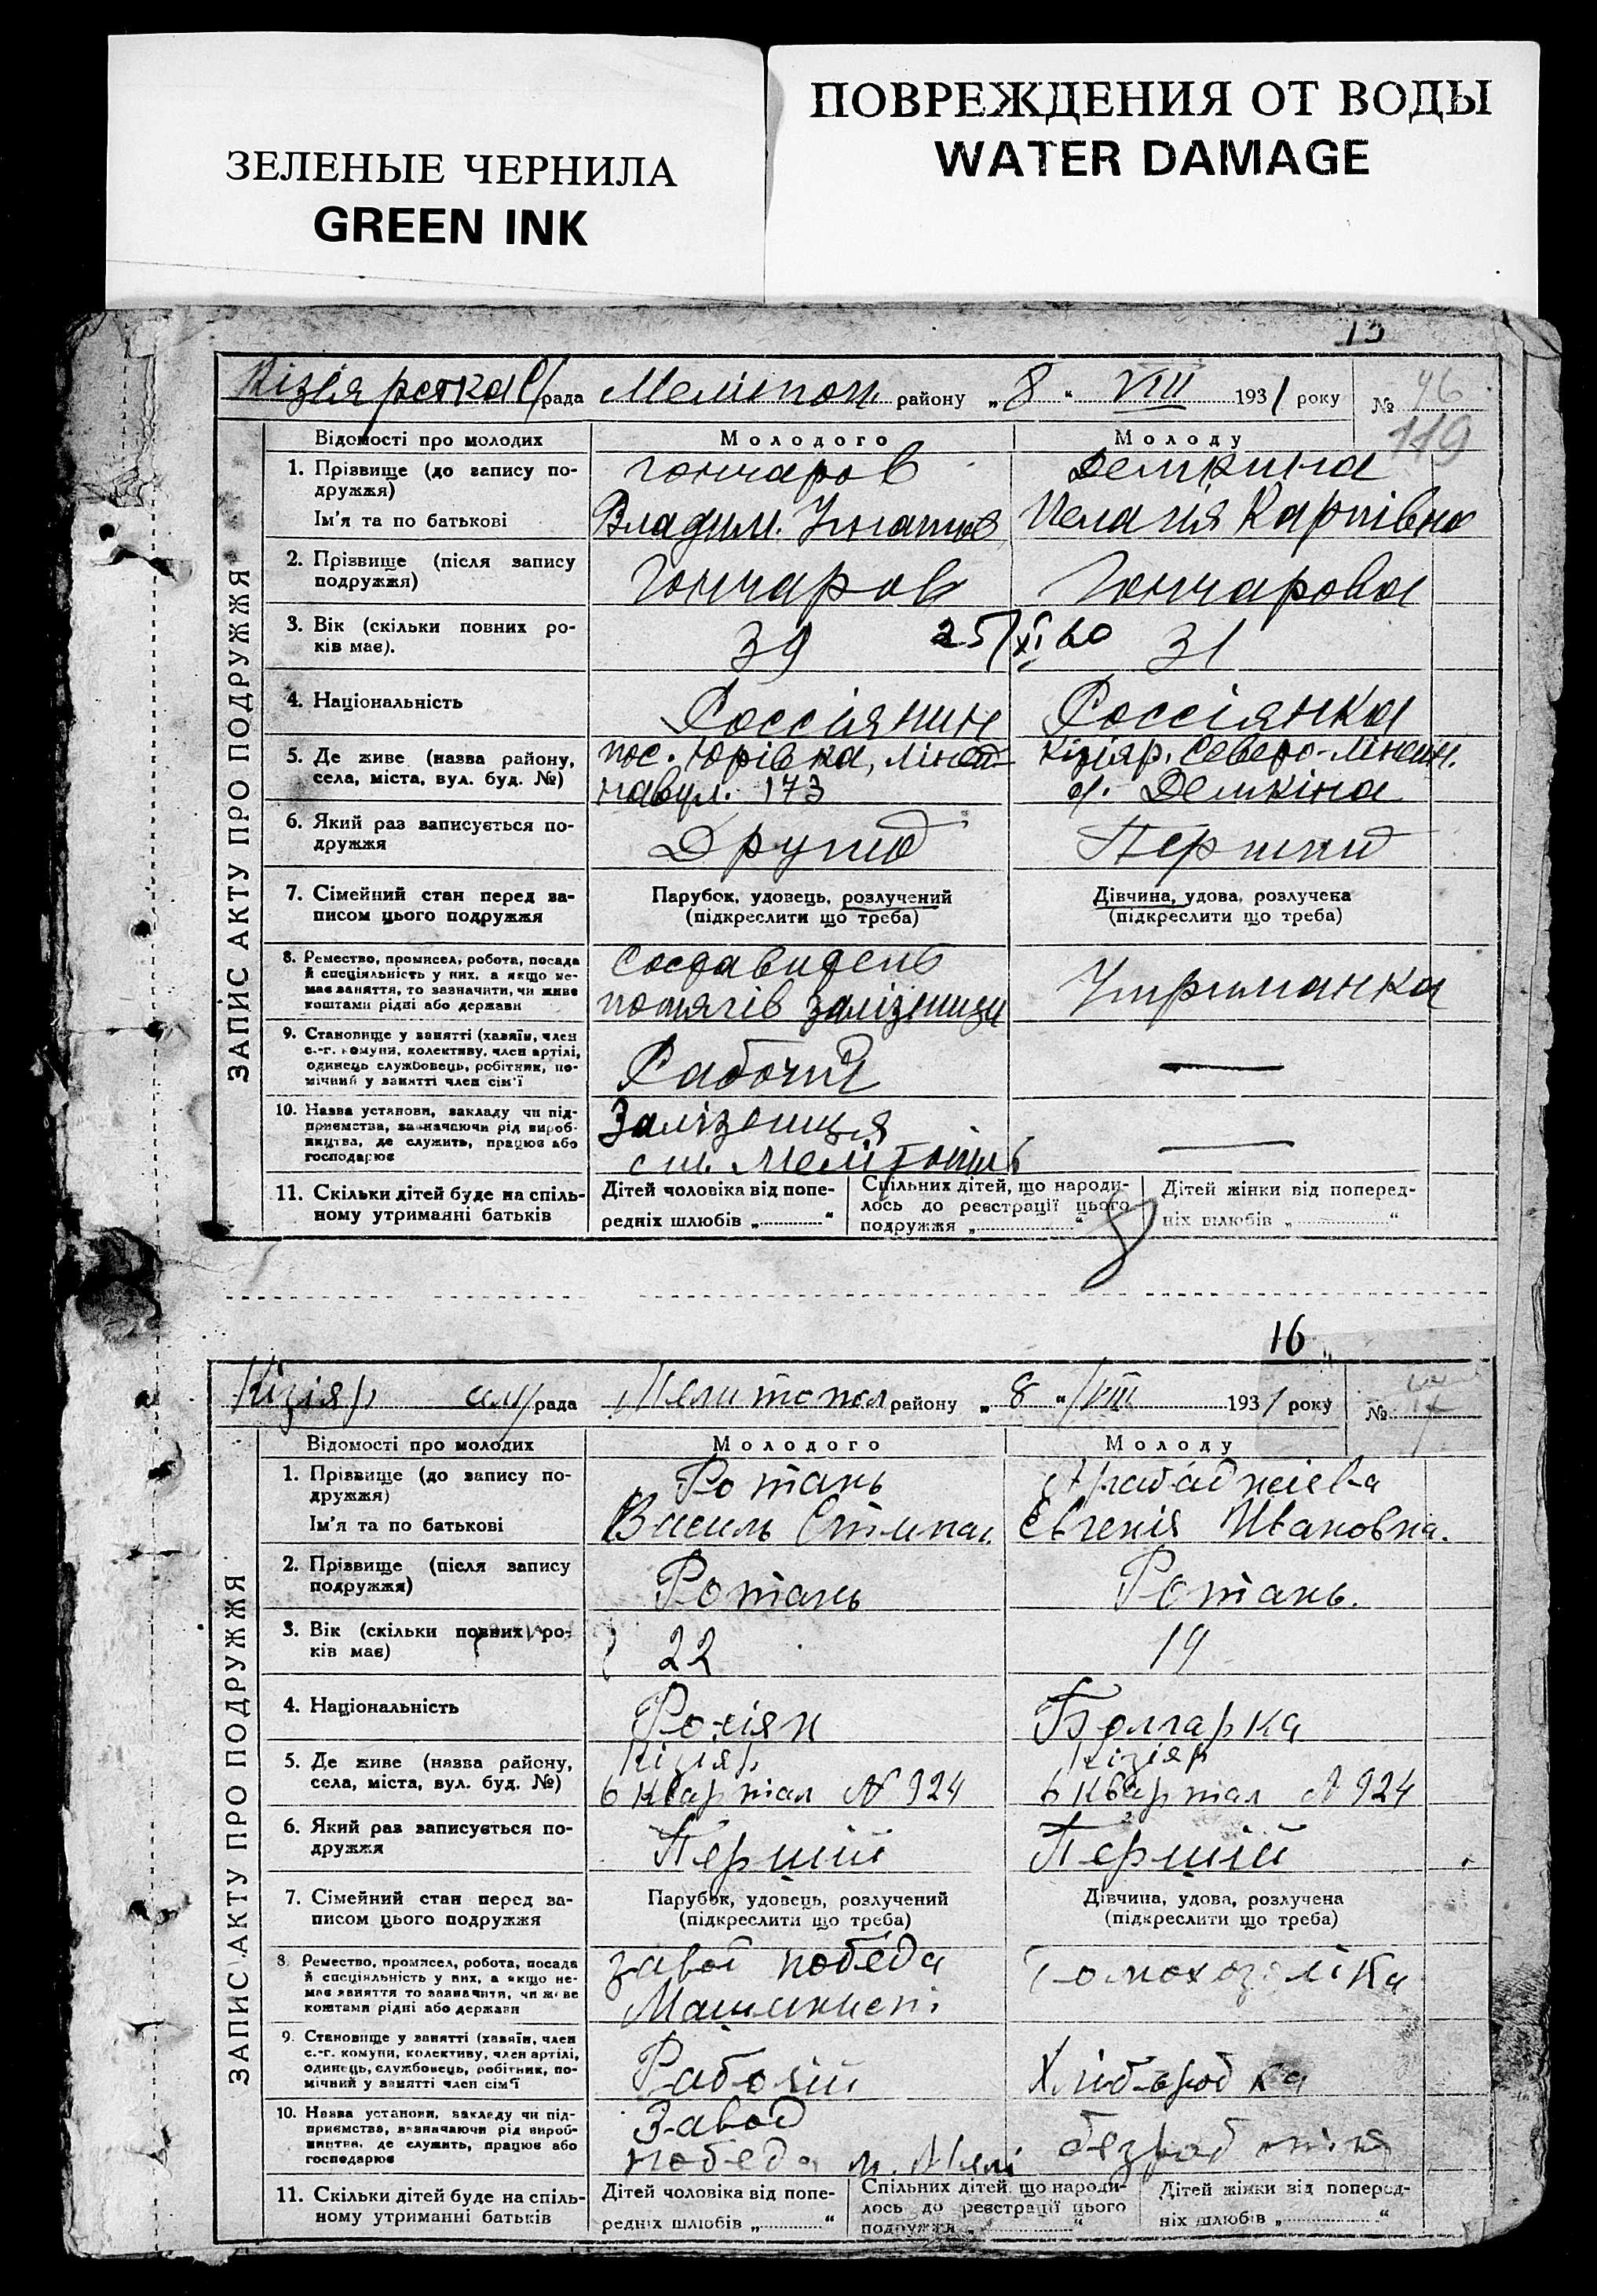 ПОВРЕЖДЕНИЯ ОТ ВОДЫ
WATER DAMAGE
ЗЕЛЕНЫЕ ЧЕРНИЛА
GREEN INK
13
рада Мелітоп. району „ 8 " VIII 1931 року № 46
119
ЗАПИС АКТУ ПРО ПОДРУЖЖЯ
Відомості про молодих Молодого Молоду
1. Прізвище (до запису по- Гончаров Демкина
дружжя)
Ім'я та по батькові Владим. Игнатьев Пелагія Карпівна
2. Прізвище (після запису Гончаров Гончарова
подружжя)
3. Вік (скільки повних ро- 39 25/XI 60 31
ків має).
4. Національність Россіянин Россіянка
5. Де живе (назва району, пос. Юрівка, Кізіяр. Северо-Лінейн.
села, міста, вул. буд. №) 173 Демкіна
6. Який раз записується по- Другий Перший
дружжя
7. Сімейний стан перед за- Парубок, удовець, розлучений Дівчина, удова, розлучена
писом цього подружжя (підкреслити що треба) (підкреслити що треба)
8. Ремество, промисел, робота, посада
й спеціяльність у них, а якщо не- Утриманка
має заняття, то зазначити, чи живе потягів залізниці
коштами рідні або держави
9. Становище у занятті (хазяїн, член
с.-г. комуни, колективу, член артілі, Рабочий —
одинець службовець, робітник, по-
мічний у занятті член сім'ї
10. Назва установи, закладу чи під- Залізниця
приємства, зазначаючи рід вироб- —
ництва, де служить, працює або ст. Мелітопіль
господарює
11. Скільки дітей буде на спіль- Дітей чоловіка від попе- Спільних дітей, що народи- Дітей жінки від поперед-
ному утриманні батьків редніх шлюбів „ " лось до реєстрації цього ніх шлюбів „ "
подружжя „ "
16
Кізіяр рада Мелитопол району „ 8 " VIII 1931 року №
ЗАПИС АКТУ ПРО ПОДРУЖЖЯ
Відомості про молодих Молодого Молоду
1. Прізвище (до запису по- Ротань Арабаджієва
дружжя)
Ім'я та по батькові Василь Степан. Євгенія Ивановна.
2. Прізвище (після запису Ротань Ротань.
подружжя)
3. Вік (скільки повних ро- 22 19
ків має)
4. Національність Росіян Болгарка
5. Де живе (назва району, Кізіяр Кізіяр
села, міста, вул. буд. №) 6 Квартал № 924 6 Квартал № 924
6. Який раз записується по- Перший Перший
дружжя
7. Сімейний стан перед за- Парубок, удовець, розлучений Дівчина, удова, розлучена
писом цього подружжя (підкреслити що треба) (підкреслити що треба)
8. Ремество, промисел, робота, посада завод победа
й спеціяльність у них, а якщо не-
має заняття то зазначити, чи живе Машинист
коштами рідні або держави
9. Становище у занятті (хазяїн, член
с.-г. комуни, колективу, член артілі, Рабочій Хлібробка
одинець, службовець, робітник, по-
мічний у занятті член сім'ї
10. Назва установи, закладу чи під- Завод
приємства, зазначаючи рід вироб-
ництва, де служить, працює або победа м. Мелі
господарює
11. Скільки дітей буде на спіль- Дітей чоловіка від попе- Спільних дітей, що народи- Дітей жінки від поперед-
ному утриманні батьків редніх шлюбів „ " лось до реєстрації цього ніх шлюбів „ "
подружжя „ "